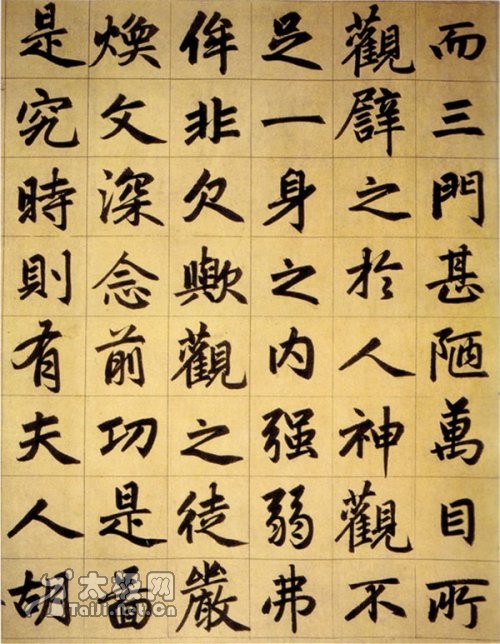 而三門甚陋萬目所
觀譬之於人神觀不
足一身之内强弱弗
侔非欠歟觀之徒嚴
焕文深念前功是啚
是究時則有夫人胡
太极网
Taiji.net.cn